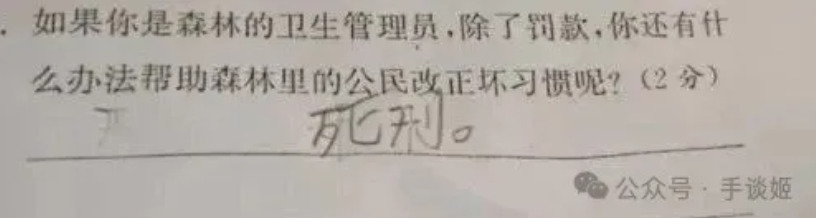 . 如果你是森林的卫生管理员,除了罚款,你还有什
么办法帮助森林里的公民改正坏习惯呢?(2分)
死刑。
公众号·手谈姬